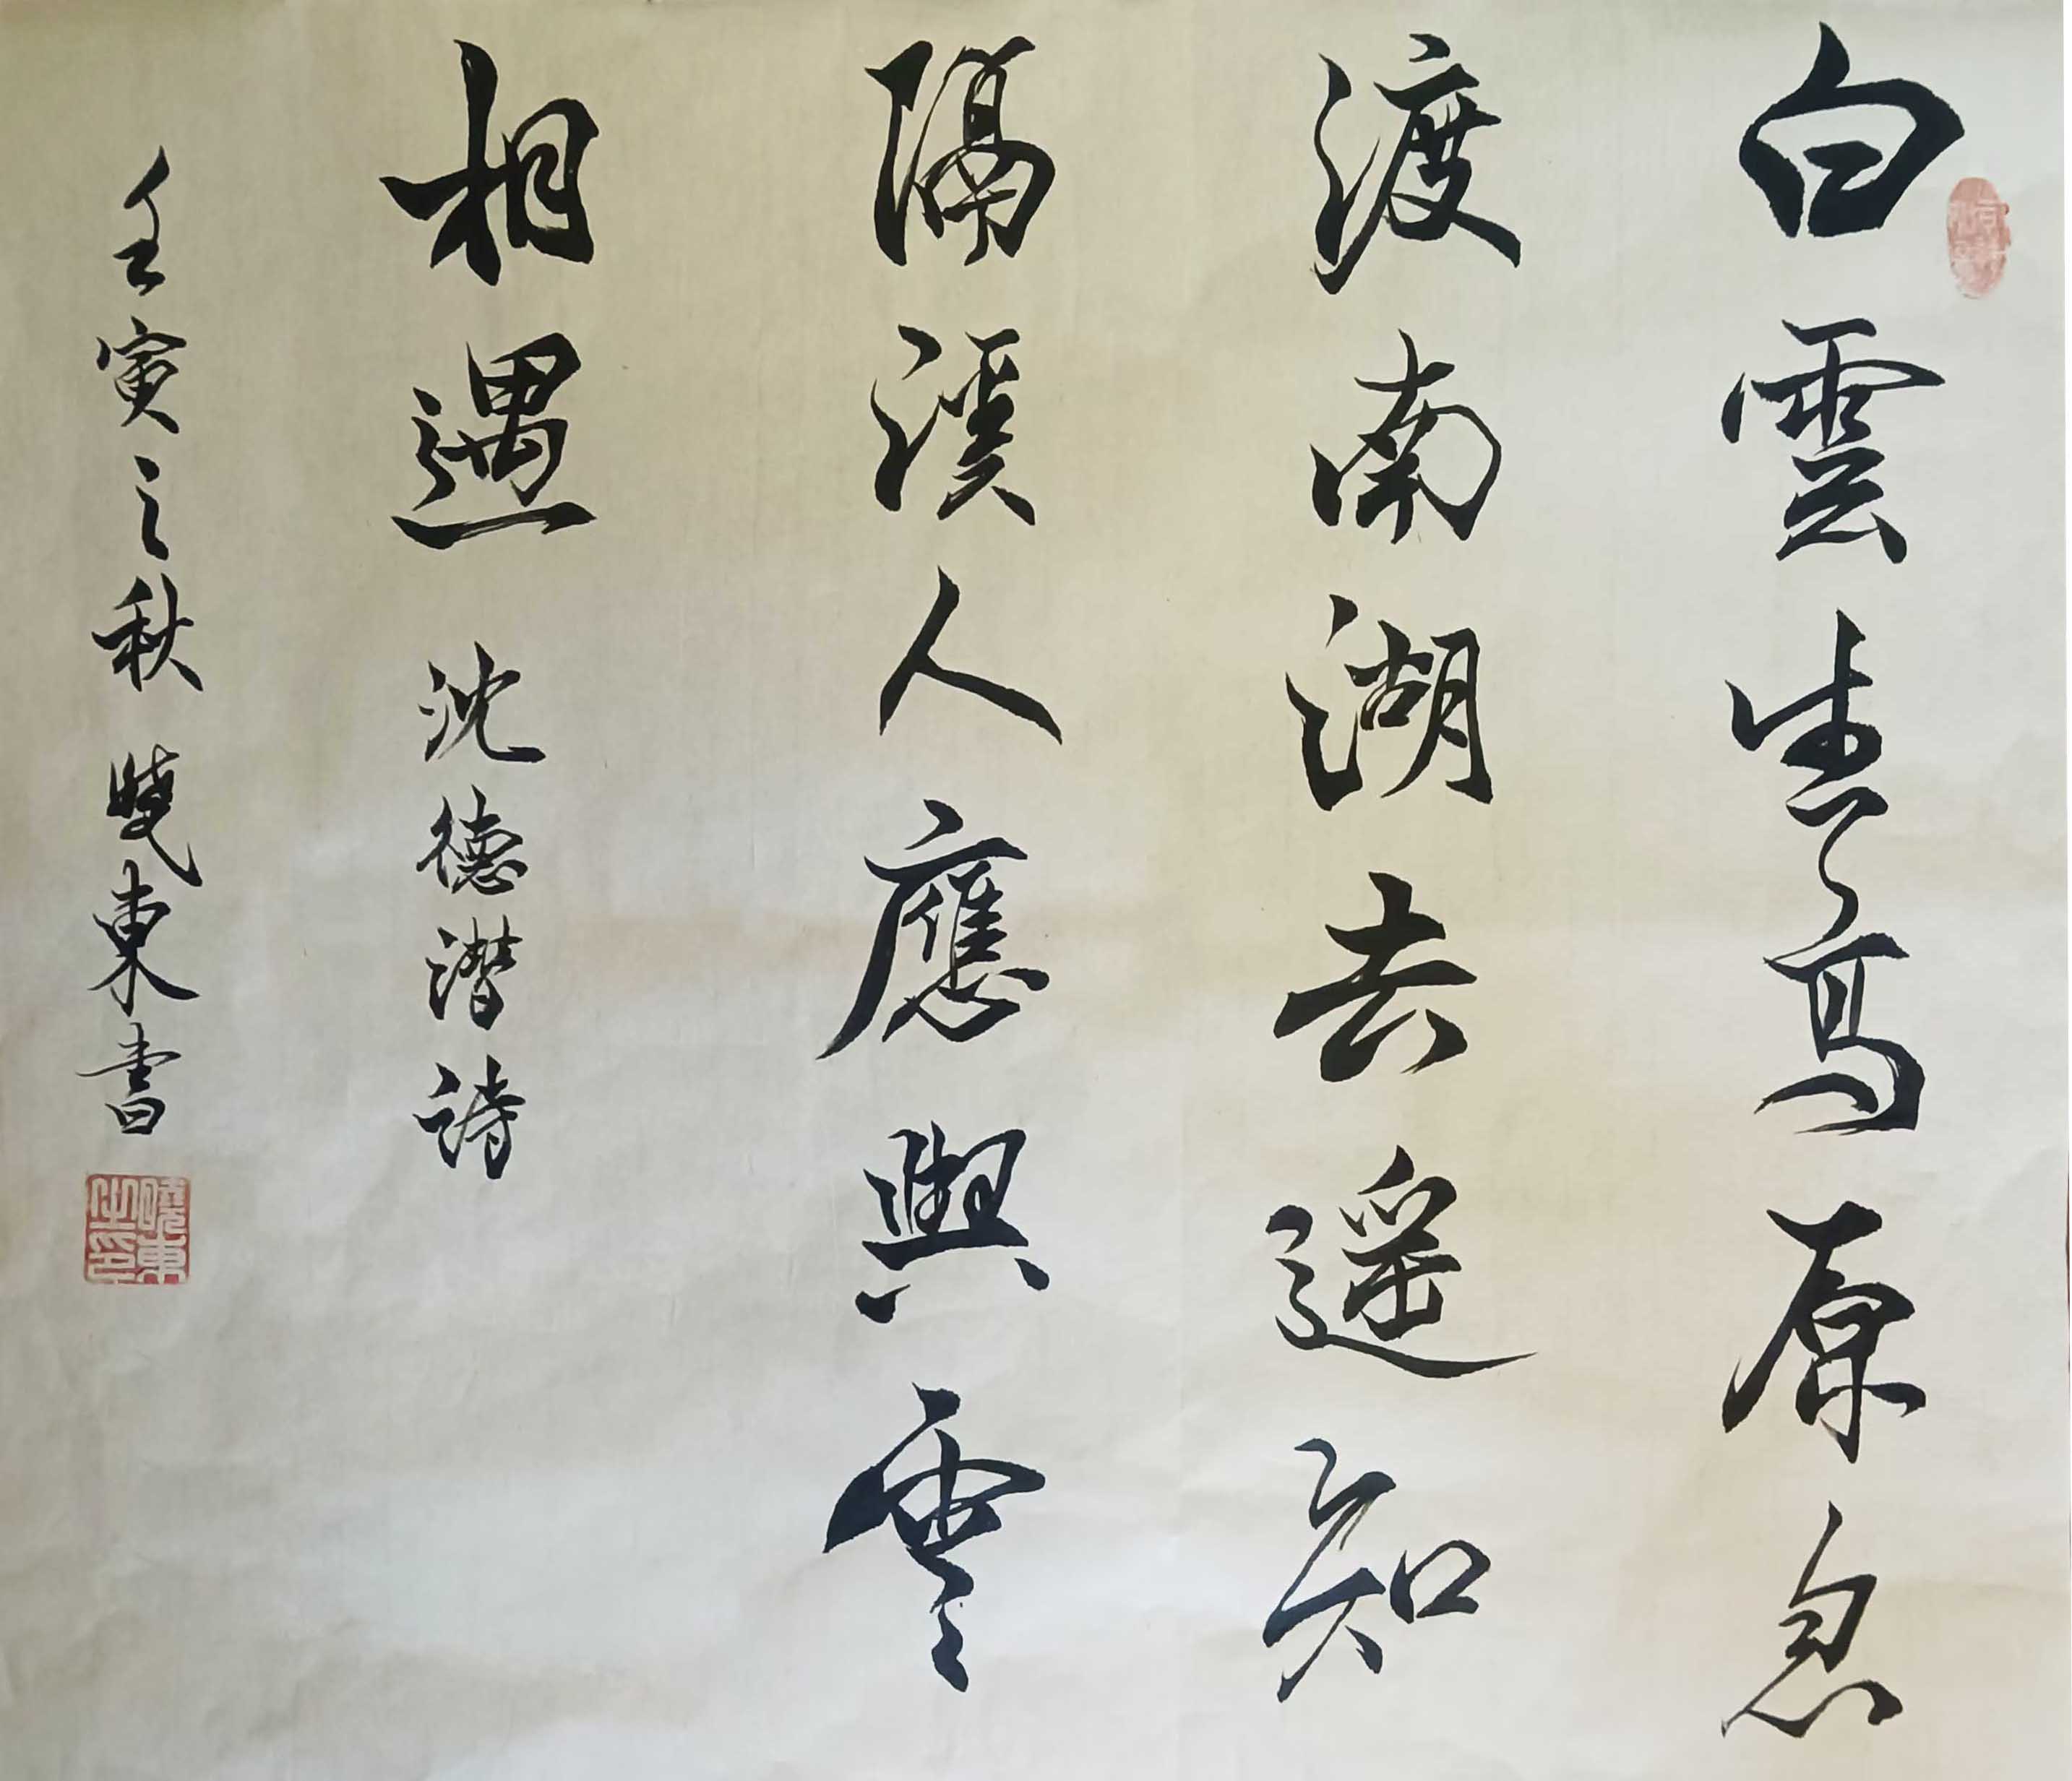 白雲生高原忽
渡南湖去遥知
隔溪人應與雲
相遇 沈德潛詩
壬寅之秋 曉東書
曉東之印